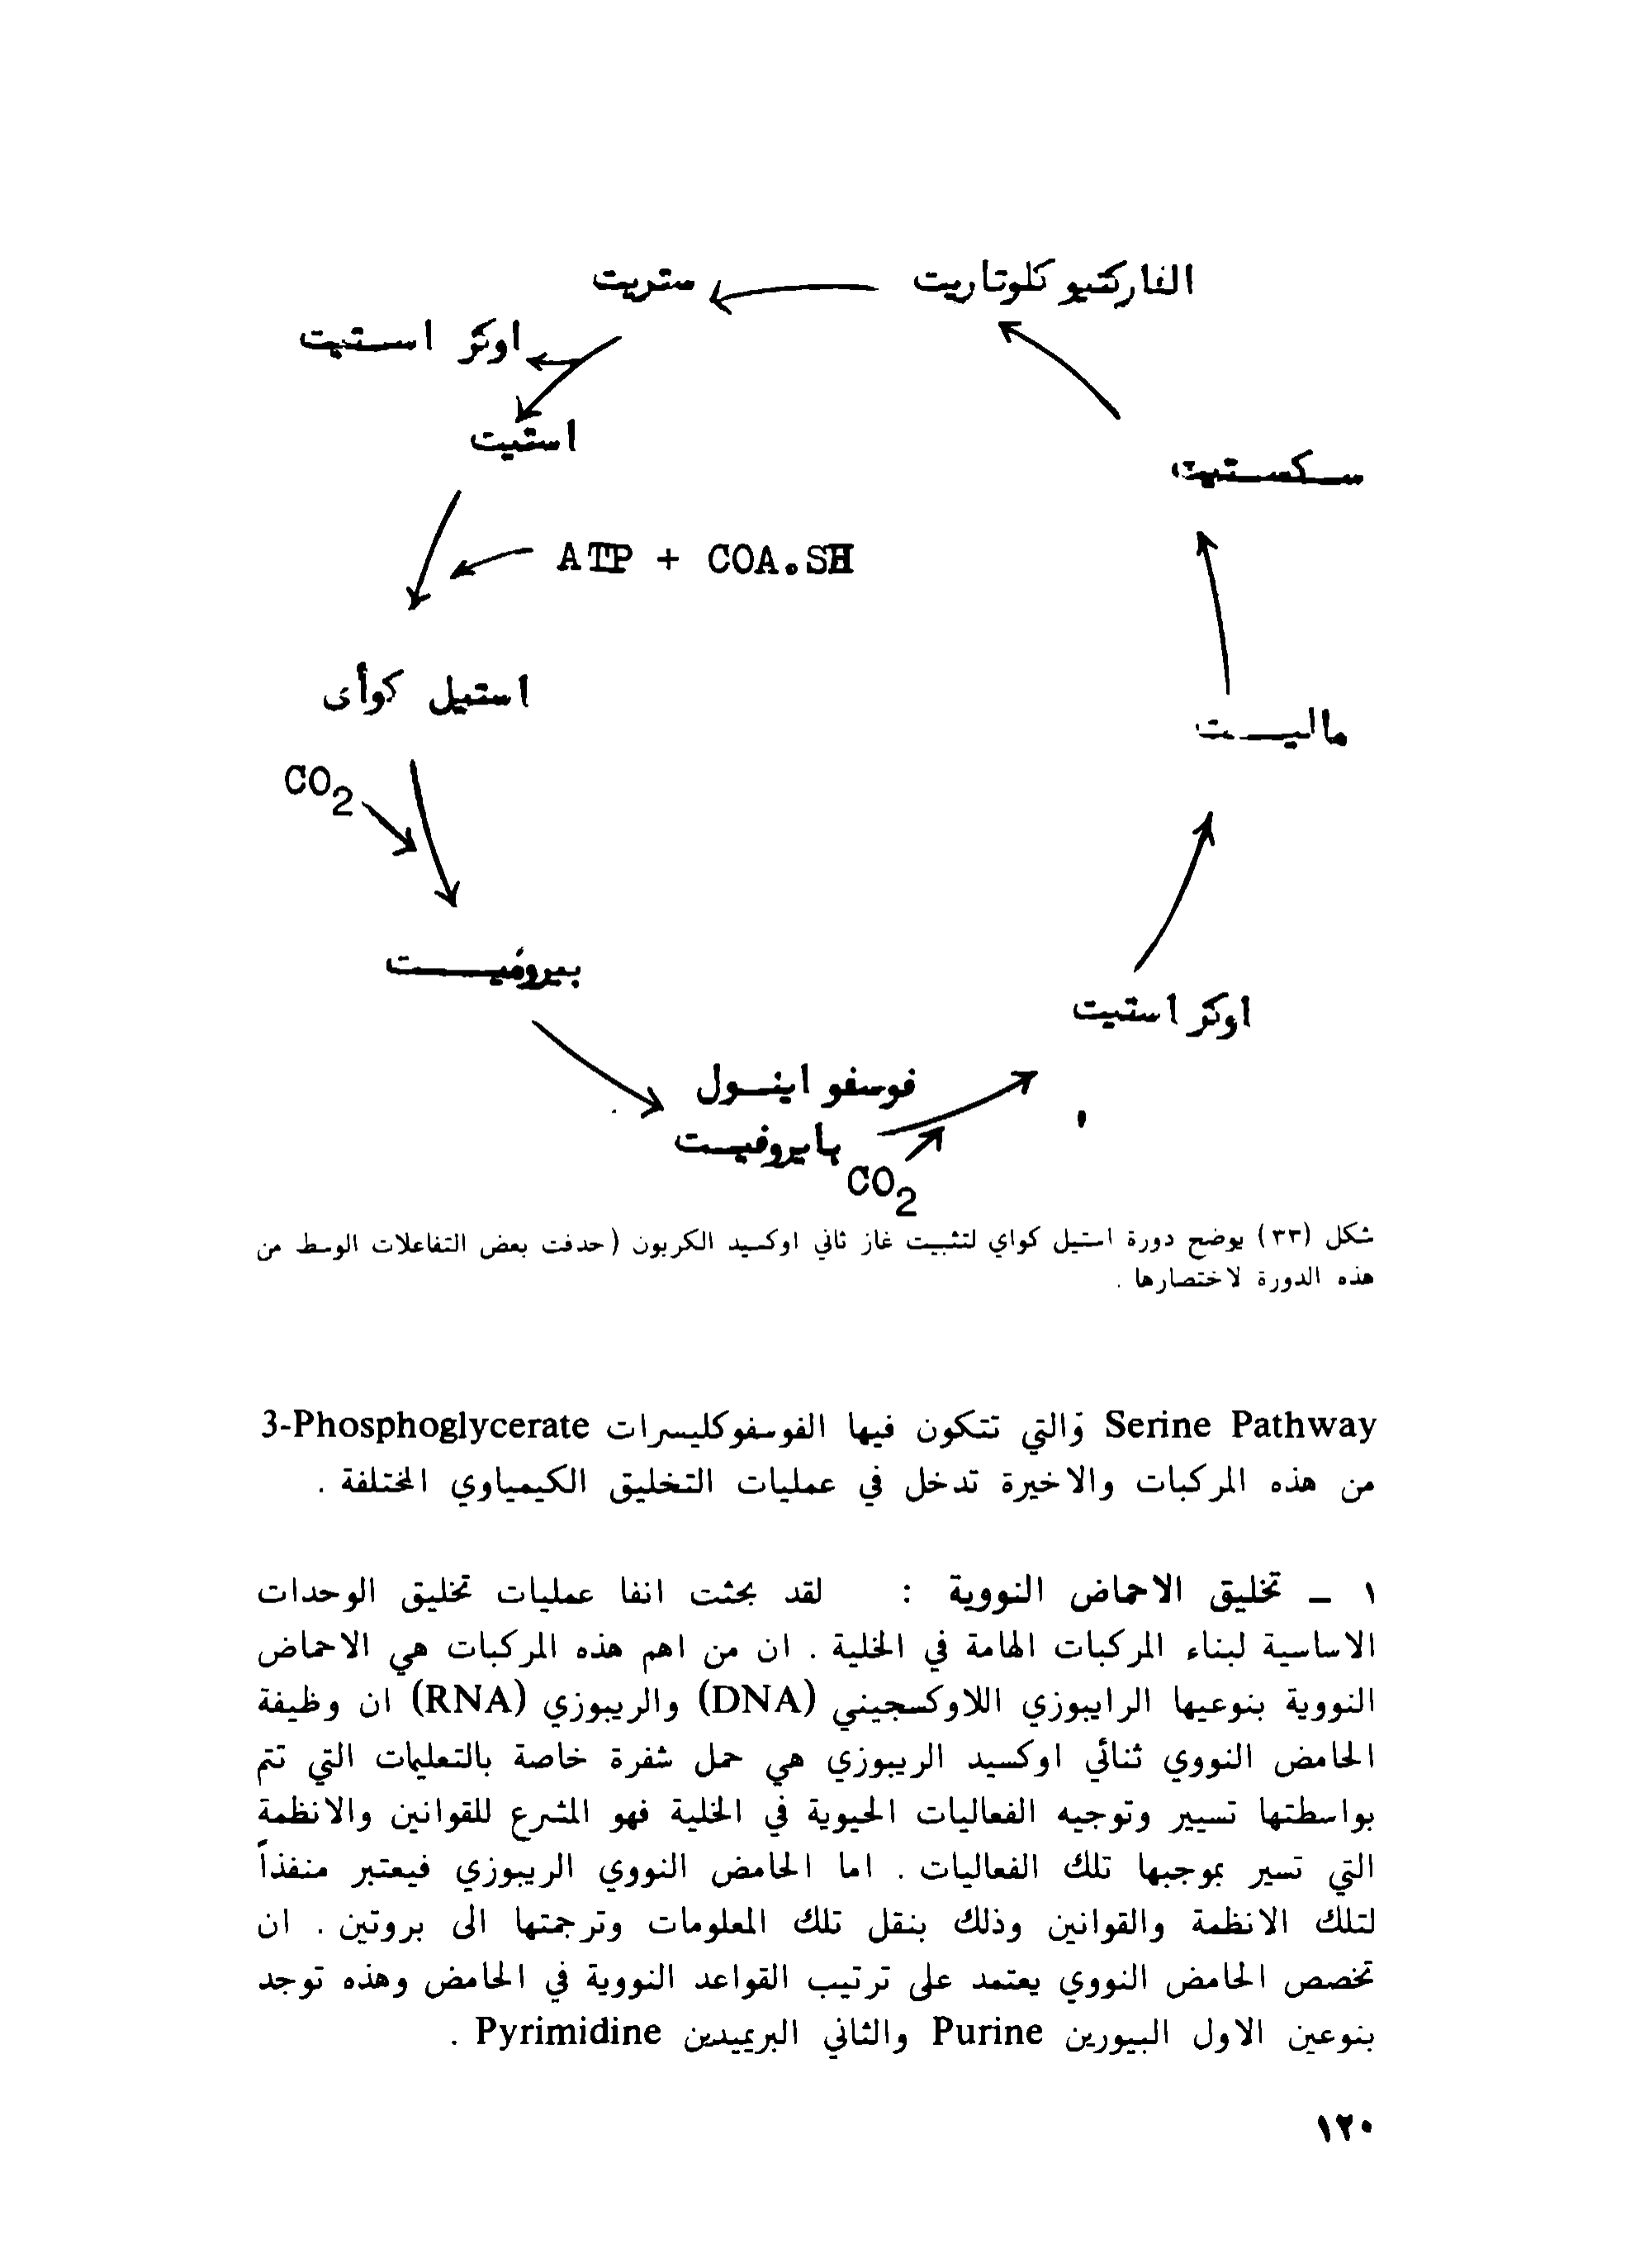 الفاركتيو كلوتاريت
ستريت
اوكز استيت
استيت
سكستيت
ATP + COA.SH
استيل كوأى
ماليت
CO2
بيروفيت
اوكز استيت
فوسفو اينول
بايروفيت
CO2
شكل (٣٣) يوضح دورة استيل كواي لتثبيت غاز ثاني اوكسيد الكربون (حدفت بعض التفاعلات الوسط من
هذه الدورة لاختصارها .
Serine Pathway والتي تتكون فيها الفوسفوكليسرات 3-Phosphoglycerate
من هذه المركبات والاخيرة تدخل في عمليات التخليق الكيمياوي المختلفة .
١ – تخليق الاحماض النووية : لقد بحثت انفا عمليات تخليق الوحدات
الاساسية لبناء المركبات الهامة في الخلية . ان من اهم هذه المركبات هي الاحماض
النووية بنوعيها الرايبوزي اللاوكسجيني (DNA) والريبوزي (RNA) ان وظيفة
الحامض النووي ثنائي اوكسيد الريبوزي هي حمل شفرة خاصة بالتعليمات التي تتم
بواسطتها تسيير وتوجيه الفعاليات الحيوية في الخلية فهو المشرع للقوانين والانظمة
التي تسير بموجبها تلك الفعاليات . اما الحامض النووي الريبوزي فيعتبر منفذاً
لتلك الانظمة والقوانين وذلك بنقل تلك المعلومات وترجمتها الى بروتين . ان
تخصص الحامض النووي يعتمد على ترتيب القواعد النووية في الحامض وهذه توجد
بنوعين الاول البيورين Purine والثاني البريميدين Pyrimidine .
١٢٠